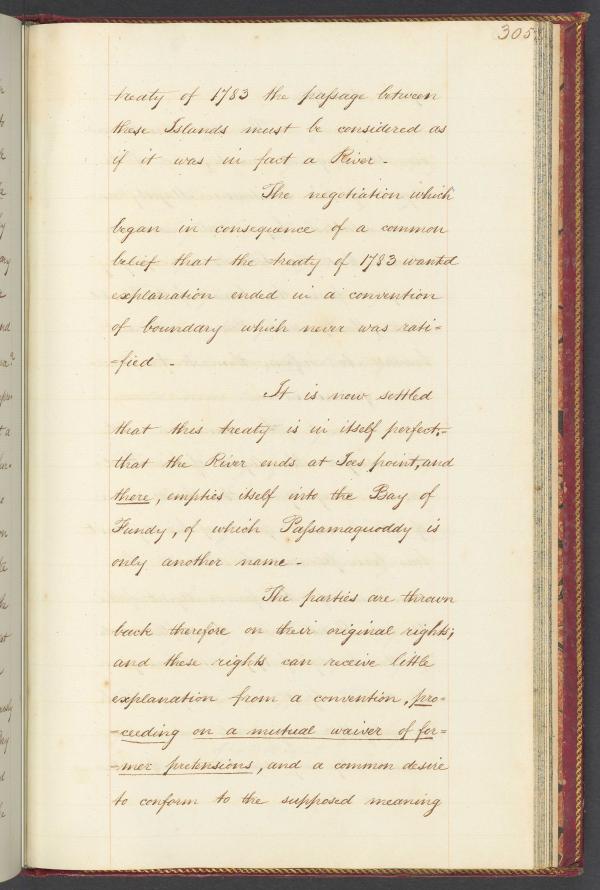 305
treaty of 1783 the passage between
these Islands must be considered as
if it was in fact a River -
The negotiation which
began in consequence of a common
belief that the treaty of 1783 wanted
explanation ended in a convention
of boundary which never was rati=
=fied -
It is now settled
that this treaty is in itself perfect,-
that the River ends at Joes point, and
there, empties itself into the Bay of
Fundy, of which Passamaquoddy is
only another name -
The parties are thrown
back therefore on their original rights;
and these rights can receive little
explanation from a convention, pro=
=ceeding on a mutual waiver of for=
=mer pretensions, and a common desire
to conform to the supposed meaning